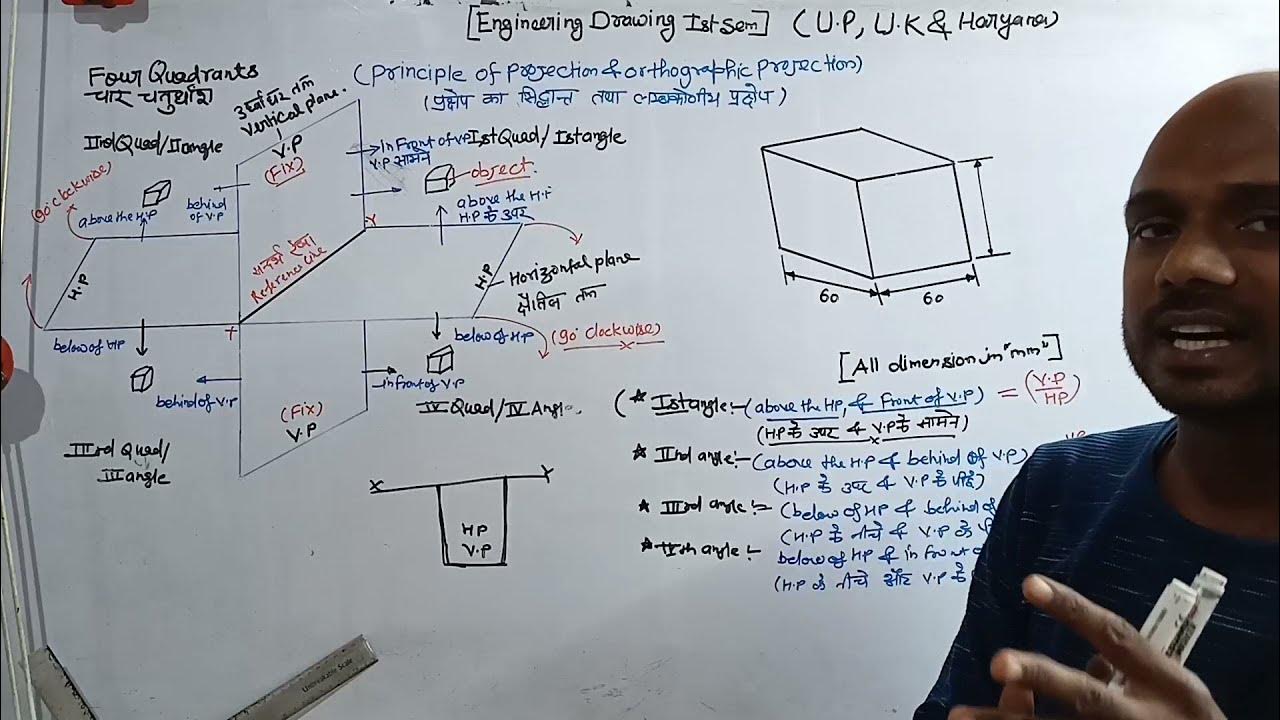 [Engineering Drawing Ist Sem] (U.P, U.K & Haryana)
Four Quadrants
चार चतुर्थांश
(Principle of Projection & orthographic projection)
(प्रक्षेप का सिद्धान्त तथा लम्बकोणीय प्रक्षेप)
उर्ध्वाधर तल
Vertical plane.
V.P
(Fix)
IInd Quad/II angle
In Front of V.P
V.P सामने
Ist Quad/Ist angle
object.
(90° clockwise)
above the H.P
behind
of V.P
above the H.P
H.P के उपर
Y
सन्दर्भ रेखा
Reference Line
H.P
H.P
Horizontal plane
क्षैतिज तल
X
below of HP
below of H.P
(90° clockwise)
behind of V.P
in front of V.P
(Fix)
V.P
IV Quad/IV Angle
IIIrd Quad/
III angle
X
Y
HP
V.P
60
60
[All dimension in "mm"]
(* Ist angle:- (above the HP, & Front of V.P) = (V.P/HP)
(HP के उपर & V.P के सामने)
* IInd angle:- (above the H.P & behind of V.P)
(H.P के उपर & V.P के पीछे)
* IIIrd angle:- (below of HP & behind of
(H.P के नीचे & V.P के
* IVth angle:- below of HP & in front
(H.P के नीचे और V.P के
Unbreakable Scale